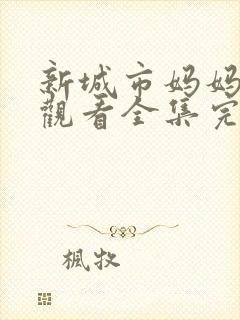 新城市妈妈
觀看全集完
楓牧